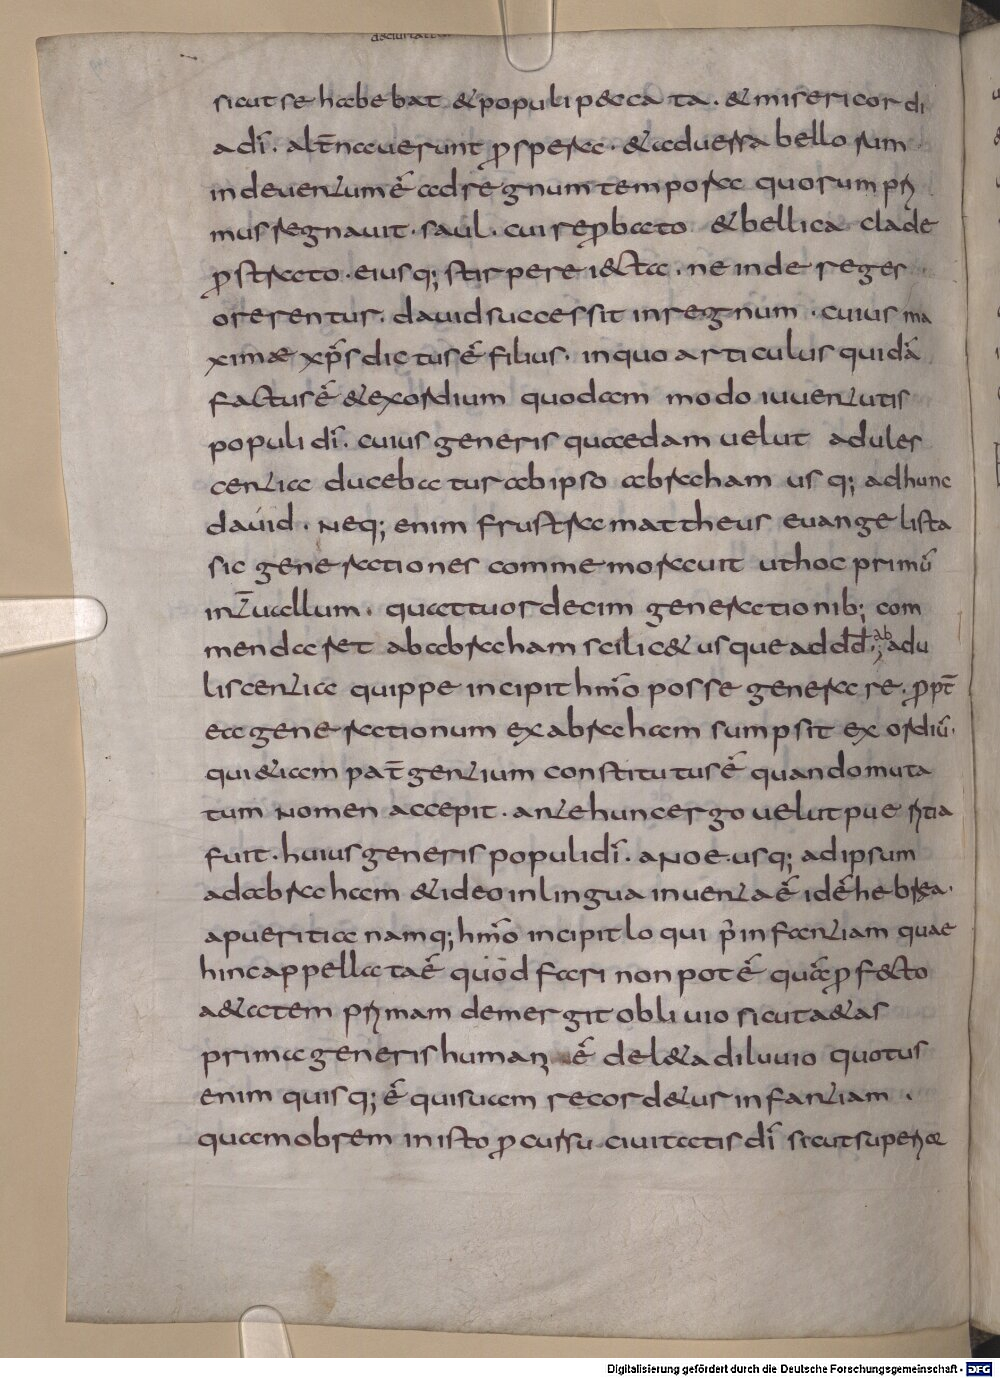 sicut se habebat & populi p&cata. & misericordi
a dī. alt̄nauerunt ꝓspera. & aduersa bellorum.
indeuentum ē ad regnum tempora quorum pri
mus regnauit. saul. cui reprobato & bellica clade
ꝓstrato. eiusq; stirpe reiecta. ne inde reges
orerentur. dauid successit in regnum. cuius ma
ximae xp̄s dictus ē filius. in quo articulus quidā
factus ē & exordium quodam modo iuuentutis
populi dī. cuius generis quaedam uelut adules
centia ducebatur ab ipso abraham usq; ad hunc
dauid. Neq; enim frustra mattheus euangelista
sic generationes commemorauit ut hoc primū
int̄uallum. quattuordecim generationib; com
mendaret ab abraham scilic& usque ad dd̄. ab adu
liscentia quippe incipit hm̄o posse generare. ꝓpt̄
ea generationum ex abraham sumpsit exordiū.
qui &iam pat̄ gentium constitutus ē quando muta
tum Nomen accepit. ante hunc ergo uelut pueritia
fuit. huius generis populi dī. a Noe. usq; ad ipsum
ad abraham & ideo in lingua inuenta ē id ē hebrea.
a pueritia namq; hm̄o incipit loqui p̄ infantiam quae
hinc appellata ē quod fari non pot ē quā ꝓfecto
a&atem primam demergit obliuio sicut a&as
prima generis humani ē del&a diluuio quotus
enim quisq; ē qui suam record&ur infantiam.
quamobrem in isto ꝓcursu ciuitatis dī sicut superiae
Digitalisierung gefördert durch die Deutsche Forschungsgemeinschaft - DFG